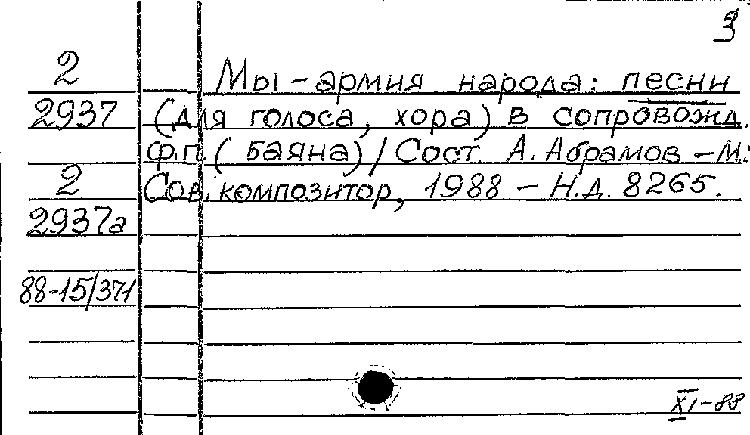 3
2 Мы - армия народа: песни
2937 (для голоса, хора) в сопровожд.
ф.п. (баяна) / Сост. А. Абрамов - М.:
2 Сов. композитор, 1988 - Н.д. 8265.
2937а
88-15/371
XI-88